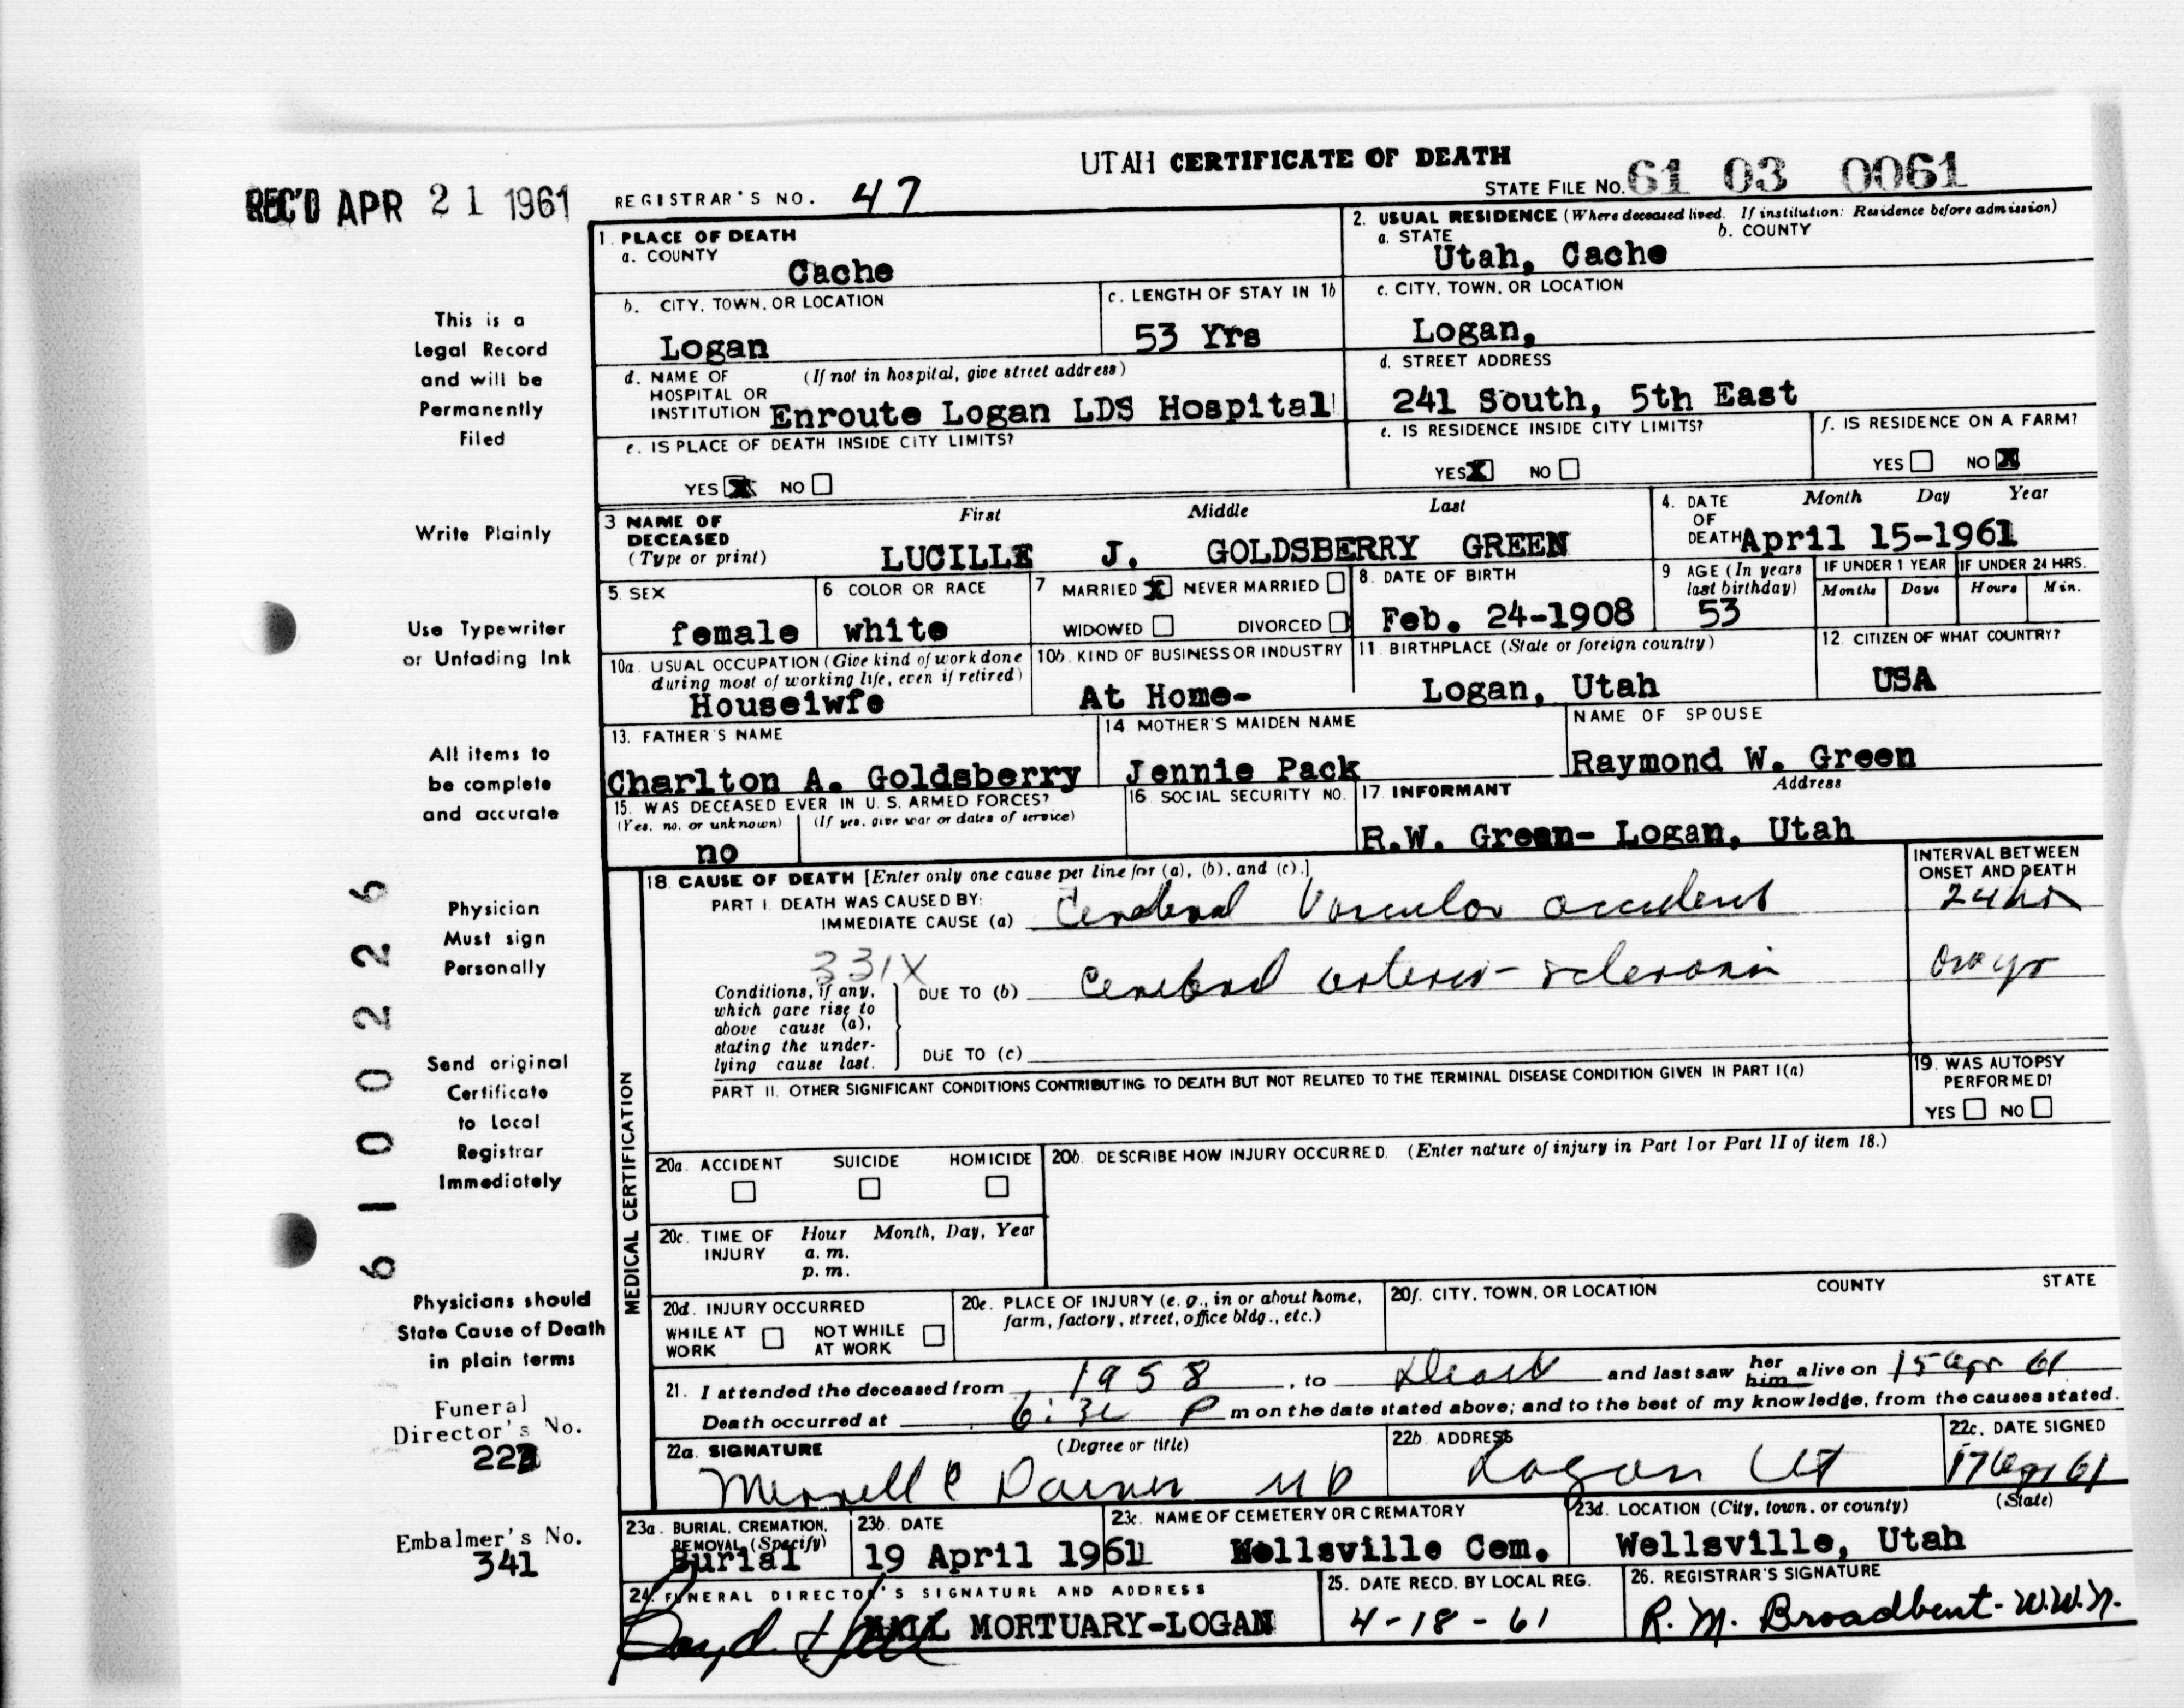 UTAH CERTIFICATE OF DEATH
REC'D APR 21 1961
REGISTRAR'S NO. 47
STATE FILE No. 61 03 0061
1. PLACE OF DEATH
a. COUNTY
Cache
2. USUAL RESIDENCE (Where deceased lived. If institution: Residence before admission)
a. STATE b. COUNTY
Utah, Cache
b. CITY, TOWN, OR LOCATION
Logan
c. LENGTH OF STAY IN 1b
53 Yrs
c. CITY, TOWN, OR LOCATION
Logan,
d. NAME OF HOSPITAL OR INSTITUTION (If not in hospital, give street address)
Enroute Logan LDS Hospital
d. STREET ADDRESS
241 South, 5th East
e. IS PLACE OF DEATH INSIDE CITY LIMITS?
YES X NO
e. IS RESIDENCE INSIDE CITY LIMITS?
YES X NO
f. IS RESIDENCE ON A FARM?
YES NO X
3 NAME OF DECEASED (Type or print)
First Middle Last
LUCILLE J. GOLDSBERRY GREEN
4. DATE OF DEATH Month Day Year
April 15-1961
5. SEX
female
6 COLOR OR RACE
white
7 MARRIED X NEVER MARRIED
WIDOWED DIVORCED
8. DATE OF BIRTH
Feb. 24-1908
9 AGE (In years last birthday)
53
IF UNDER 1 YEAR IF UNDER 24 HRS.
Months Days Hours Min.
10a. USUAL OCCUPATION (Give kind of work done during most of working life, even if retired)
Houseiwfe
10b. KIND OF BUSINESS OR INDUSTRY
At Home-
11. BIRTHPLACE (State or foreign country)
Logan, Utah
12. CITIZEN OF WHAT COUNTRY?
USA
13. FATHER'S NAME
Charlton A. Goldsberry
14 MOTHER'S MAIDEN NAME
Jennie Pack
NAME OF SPOUSE
Raymond W. Green
15. WAS DECEASED EVER IN U. S. ARMED FORCES?
(Yes, no, or unknown) (If yes, give war or dates of service)
no
16. SOCIAL SECURITY NO.
17. INFORMANT Address
R.W. Green- Logan, Utah
MEDICAL CERTIFICATION
18. CAUSE OF DEATH [Enter only one cause per line for (a), (b), and (c).]
INTERVAL BETWEEN ONSET AND DEATH
PART I. DEATH WAS CAUSED BY:
IMMEDIATE CAUSE (a) Cerebral Vascular accident 24 hr
331X
Conditions, if any, which gave rise to above cause (a), stating the underlying cause last.
DUE TO (b) Cerebral arterio-sclerosis
DUE TO (c)
PART II. OTHER SIGNIFICANT CONDITIONS CONTRIBUTING TO DEATH BUT NOT RELATED TO THE TERMINAL DISEASE CONDITION GIVEN IN PART I(a)
19. WAS AUTOPSY PERFORMED?
YES NO
20a. ACCIDENT SUICIDE HOMICIDE
20b. DESCRIBE HOW INJURY OCCURRED. (Enter nature of injury in Part I or Part II of item 18.)
20c. TIME OF INJURY Hour Month, Day, Year
a. m.
p. m.
20d. INJURY OCCURRED
WHILE AT WORK NOT WHILE AT WORK
20e. PLACE OF INJURY (e. g., in or about home, farm, factory, street, office bldg., etc.)
20f. CITY, TOWN, OR LOCATION COUNTY STATE
21. I attended the deceased from 1958, to Death and last saw her him alive on 15 Apr 61
Death occurred at 6:30 P m on the date stated above; and to the best of my knowledge, from the causes stated.
22a. SIGNATURE (Degree or title)
Merrell C Daines MD
22b. ADDRESS
Logan Ut
22c. DATE SIGNED
17 Apr 61
23a. BURIAL, CREMATION, REMOVAL (Specify)
Burial
23b. DATE
19 April 1961
23c. NAME OF CEMETERY OR CREMATORY
Wellsville Cem.
23d. LOCATION (City, town, or county) (State)
Wellsville, Utah
24. FUNERAL DIRECTOR'S SIGNATURE AND ADDRESS
Boyd Hall HALL MORTUARY-LOGAN
25. DATE RECD. BY LOCAL REG.
4-18-61
26. REGISTRAR'S SIGNATURE
R. M. Broadbent-W.W.N.
This is a
Legal Record
and will be
Permanently
Filed
Write Plainly
Use Typewriter
or Unfading Ink
All items to
be complete
and accurate
Physician
Must sign
Personally
Send original
Certificate
to Local
Registrar
Immediately
Physicians should
State Cause of Death
in plain terms
Funeral
Director's No.
Embalmer's No.
341
6100226